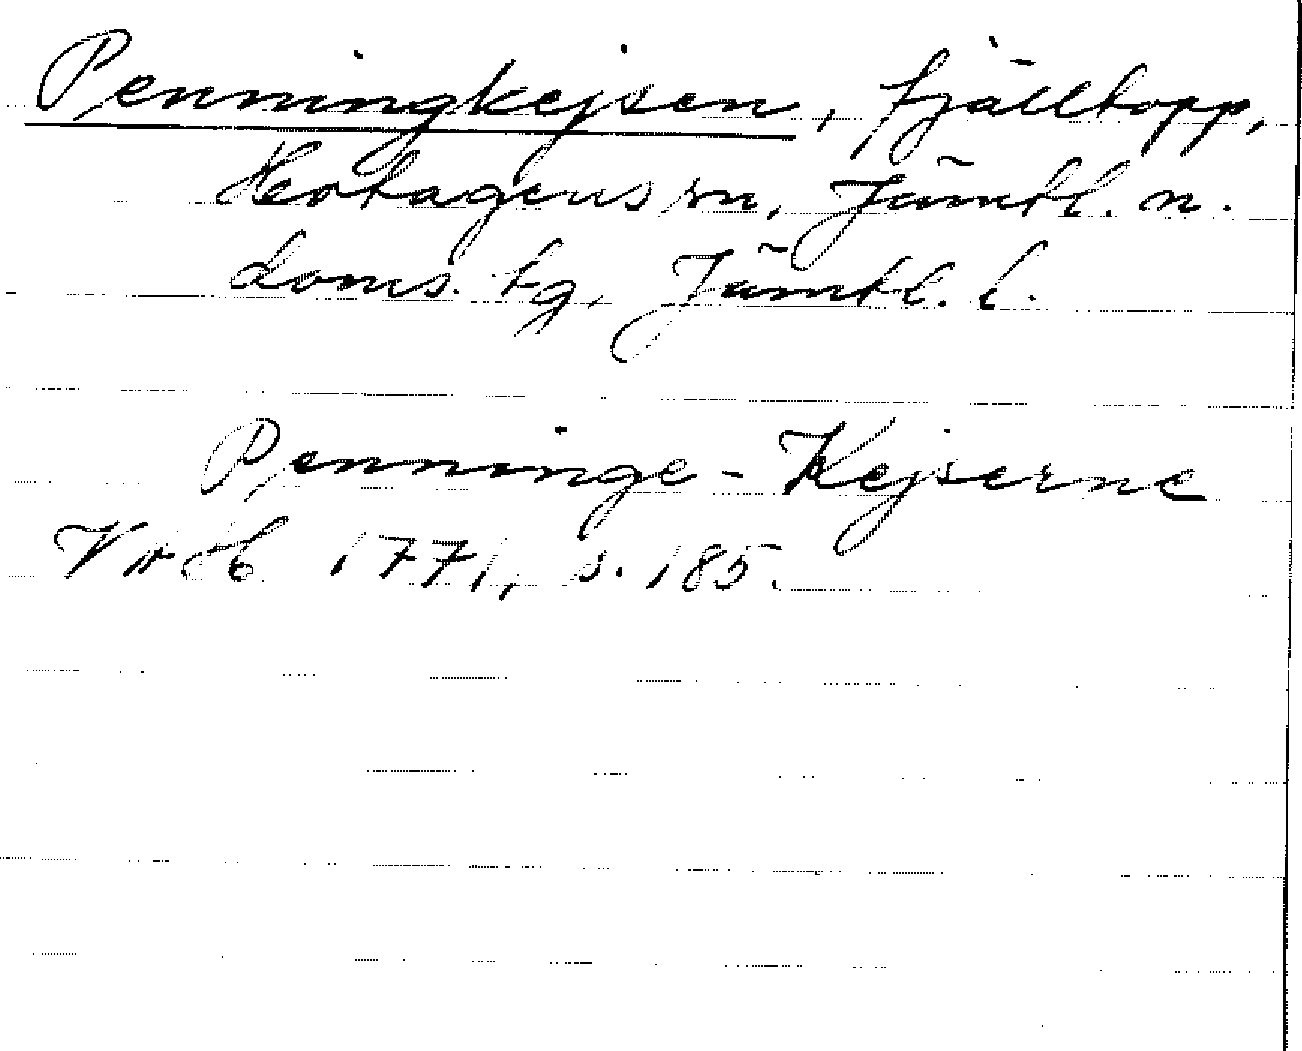 Penningkejsen, fjälltopp,
Hotagens sn, Jämtl. n.
doms. tg, Jämtl. l.
Penninge-Kejserne
VAH 1771, s. 185.